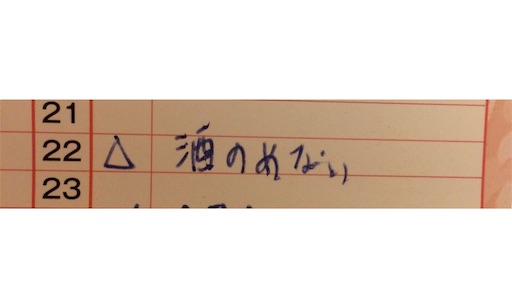 21
22 △ 酒のめない
23